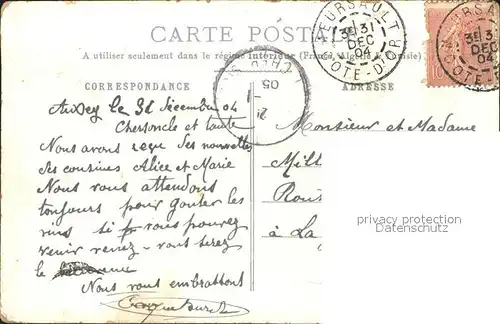 CARTE POSTALE
A utiliser seulement dans le régime intérieur (France, Algérie & Tunisie).
CORRESPONDANCE
ADRESSE
MEURSAULT
3E 31
DEC
04
COTE-D'OR
05
Auxey le 31 décembre 04
Cher oncle et tante
Nous avons reçu des nouvelles
des cousines Alice et Marie
Nous vous attendons
toujours pour gouter les
vins si vous pouvez
venir venez - vous serez
le
Nous vous embrassons
Monsieur et Madame
Mill
Rou
à La
privacy protection
Datenschutz